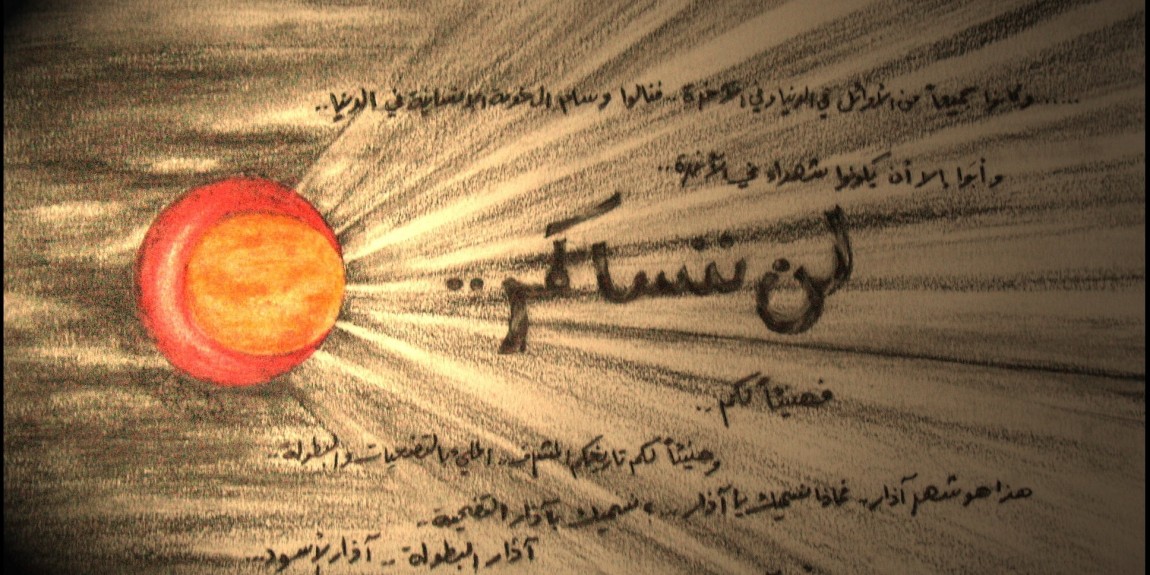 .....وكانوا جميعاً من الأوائل في الدنيا وفي الآخرة.. فنالوا وسام الأخوة الإنسانية في الدنيا..
وأبوا إلا أن يكونوا شهداء في الآخرة..
لن ننساكم..
فهنيئاً لكم..
وهنيئاً لكم تاريخكم المشرف.. المليء بالتضحيات والبطولة..
هذا هو شهر آذار.. فماذا نسميك يا آذار.. نسميك يا آذار التضحية..
آذار البطولة.. آذار الأسود..